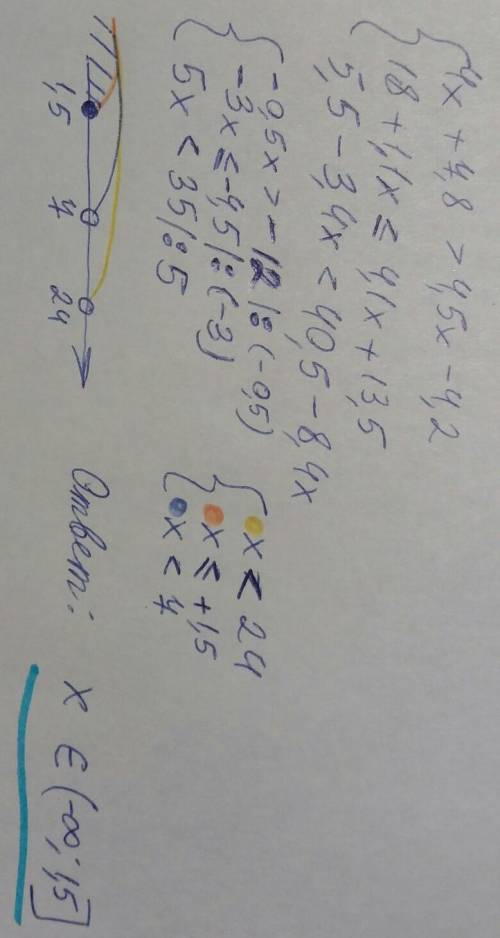 4x + 4,8 > 4,5x - 4,2
18 + 1,1x ≤ 4,1x + 13,5
5,5 - 3,4x < 40,5 - 8,4x
-0,5x > -12 |:(-0,5)
-3x ≤ -4,5 |:(-3)
5x < 35 |:5
x < 24
x ≤ +1,5
x < 4
1,5 4 24
Ответ: x ∈ (-∞; 1,5]